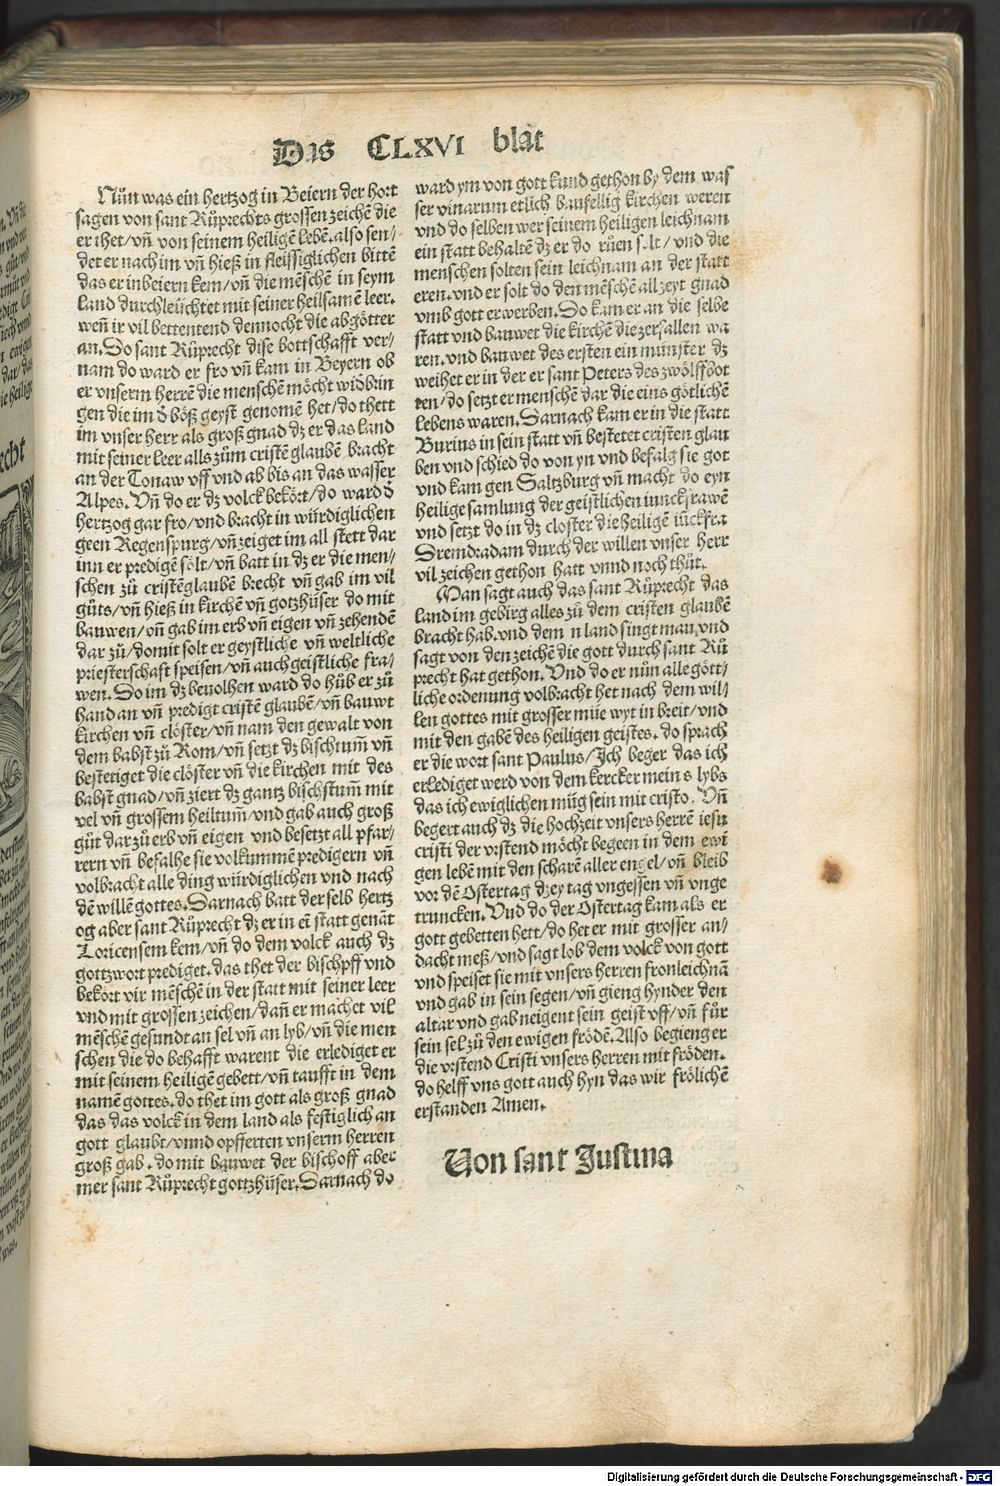 Das CLXVI blat
Nůn was ein hertzog in Beiern der hort
sagen von sant Růprechts grossen zeichē die
er thet/vn̄ von seinem heiligē lebē. also sen-
det er nach im vn̄ hieß in fleissiglichen bittē
das er in beiern kem/vn̄ die mēschē in seym
land durchleüchtet mit seiner heilsamē leer.
wen̄ ir vil bettentend dennocht die abgötter
an. So sant Růprecht dise bottschafft ver-
nam do ward er fro vn̄ kam in Beyern ob
er vnserm herrē die menschē möcht widbrin
gen die im d̄ böß geyst genomē het/do thett
im vnser herr als groß gnad dz er das land
mit seiner leer alls zům cristē glaubē bracht
an der Tonaw vff vnd ab bis an das wasser
Alpes. Vn̄ do er dz volck bekört/do ward d̄
hertzog gar fro/vnd bracht in würdiglichen
geen Regenspurg/vn̄ zeiget im all stett dar
inn er predigē sölt/vn̄ batt in dz er die men-
schen zů cristēglaubē brecht vn̄ gab im vil
gůts/vn̄ hieß in kirchē vn̄ gotzhüser do mit
bauwen/vn̄ gab im erb vn̄ eigen vn̄ zehendē
dar zů/domit solt er geystliche vn̄ weltliche
priesterschaft speisen/vn̄ auch geistliche fra-
wen. So im dz beuolhen ward do hůb er zů
hand an vn̄ predigt cristē glaubē/vn̄ bauwt
kirchen vn̄ clöster/vn̄ nam den gewalt von
dem babst zů Rom/vn̄ setzt dz bischtum̄ vn̄
bestetiget die clöster vn̄ die kirchen mit des
babst gnad/vn̄ ziert dz gantz bischstum̄ mit
vel vn̄ grossem heiltum/vnd gab auch groß
gůt darzů erb vn̄ eigen vnd besetzt all pfar-
rern vn̄ befalhe sie volkummē predigern vn̄
volbracht alle ding würdiglichen vnd nach
dē willē gottes. Darnach batt der selb hertz
og aber sant Růprecht dz er in ei statt genāt
Loricensem kem/vn̄ do dem volck auch dz
gottzwort prediget. das thet der bischpff vnd
bekört vir mēschē in der statt mit seiner leer
vnd mit grossen zeichen/dan̄ er machet vil
mēschē gesundt an sel vn̄ an lyb/vn̄ die men
schen die do behafft warent die erlediget er
mit seinem heiligē gebett/vn̄ taufft in dem
namē gottes. do thet im gott als groß gnad
das das volck in dem land als festiglich an
gott glaubt/vnnd opfferten vnserm herren
groß gab. do mit bauwet der bischoff aber
mer sant Růprecht gottzhüser. Darnach do
ward ym von gott kund gethon by dem was
ser vinarum etlich baufellig kirchen weren
vnd do selben wer seinem heiligen leichnam
ein statt behaltē dz er do růen solt/vnd die
menschen solten sein leichnam an der statt
eren. vnd er solt do den mēschē all zeyt gnad
vmb gott erwerben. So kam er an die selbe
statt vnd bauwet die kirchē die zerfallen wa
ren. vnd bauwet des ersten ein münster dz
weihet er in der er sant Peters des zwölffbot
ten/do setzt er menschē dar die eins götlichē
lebens waren. Darnach kam er in die statt
Burius in sein statt vn̄ bestetet cristen glau
ben vnd schied do von yn vnd befalg sie got
vnd kam gen Saltzburg vn̄ macht do eyn
heilige samlung der geistlichen iunckfrawē
vnd setzt do in dz closter die heiligē iūckfra
Dremdradam durch der willen vnser herr
vil zeichen gethon hatt vnnd noch thůt.
Man sagt auch das sant Růprecht das
land im gebirg alles zů dem cristen glaubē
bracht hab. vnd dem n land singt mau. vnd
sagt von den zeichē die gott durch sant Rů
precht hat gethon. Vnd do er nůn alle gött-
liche ordenung volbracht het nach dem wil-
len gottes mit grosser müe wyt in breit/vnd
mit den gabē des heiligen geistes. do sprach
er die wort sant Paulus/Ich beger das ich
erlediget werd von dem kercker meins lybs
das ich ewiglichen müg sein mit cristo. Vn̄
begert auch dz die hochzeit vnsers herrē iesu
cristi der vrstend möcht begeen in dem ewi
gen lebē mit den scharē aller engel/vn̄ bleib
vor dē Ostertag dzey tag vngessen vn̄ vnge
truncken. Vnd do der Ostertag kam als er
gott gebetten hett/do het er mit grosser an-
dacht meß/vnd sagt lob dem volck von gott
vnd speiset sie mit vnsers herren fronleichnā
vnd gab in sein segen/vn̄ gieng hynder den
altar vnd gab neigent sein geist vff/vn̄ für
sein sel zů den ewigen frödē. Also begieng er
die vrstend Cristi vnsers herren mit fröden.
do helff vns gott auch hyn das wir frölichē
erstanden Amen.
Von sant Justina
Digitalisierung gefördert durch die Deutsche Forschungsgemeinschaft - DFG